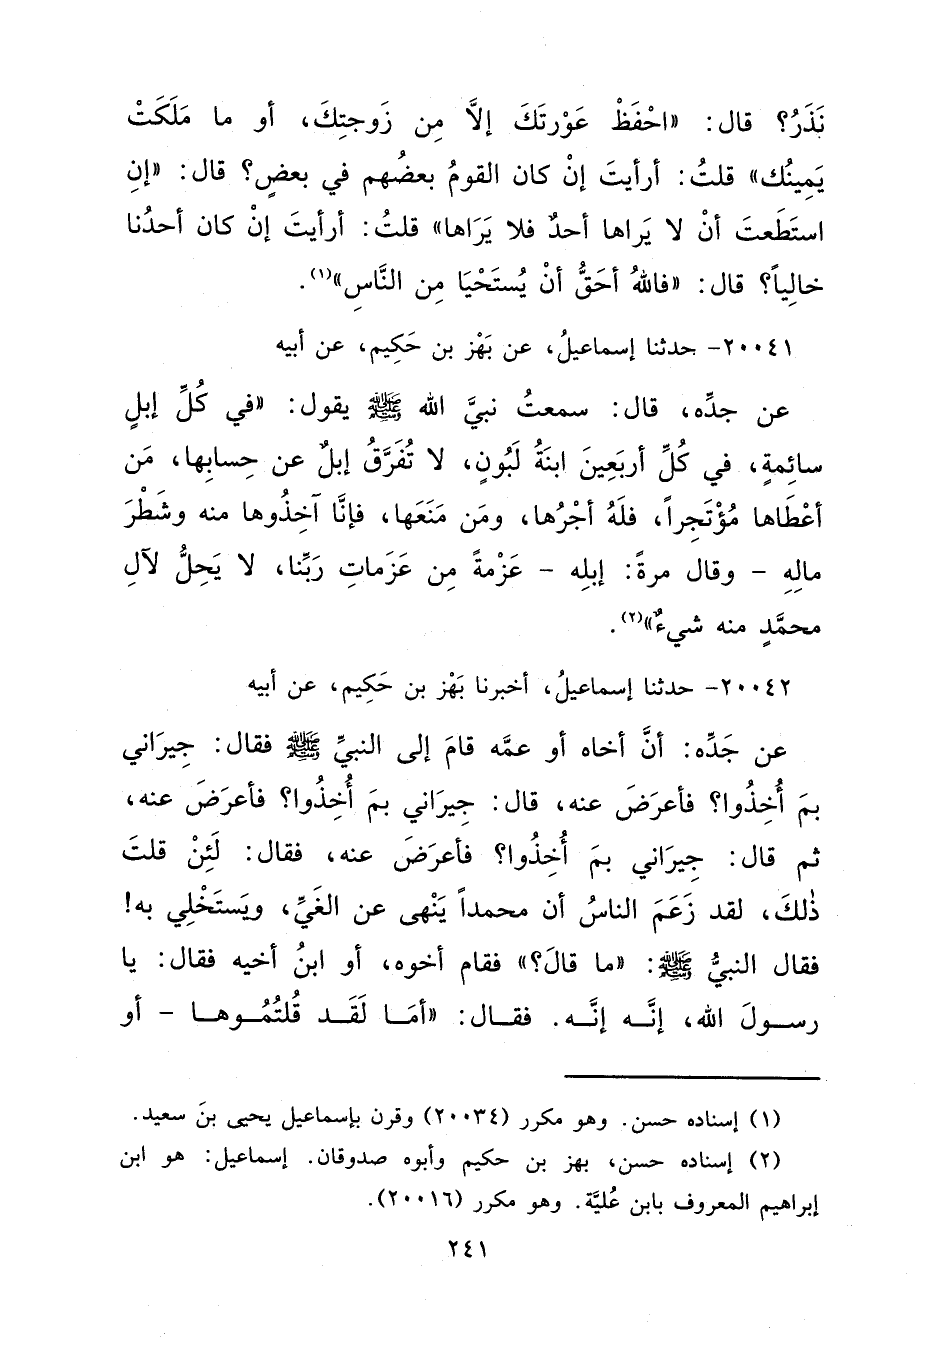 نَذَرُ؟ قال: «احْفَظْ عَوْرتَكَ إلَّا مِن زَوجتِكَ، أو ما مَلَكَتْ
يَمِينُك» قلتُ: أرأيتَ إنْ كان القومُ بعضُهم في بعضٍ؟ قال: «إنِ
استَطَعتَ أنْ لا يَراها أحدٌ فلا يَرَاها» قلتُ: أرأيتَ إنْ كان أحدُنا
خالِياً؟ قال: «فاللهُ أحَقُّ أنْ يُستَحْيَا مِن النَّاسِ»(١).
٢٠٠٤١- حدثنا إسماعيلُ، عن بَهْز بن حَكِيم، عن أبيه
عن جدِّه، قال: سمعتُ نبيَّ الله ﷺ يقول: «في كُلِّ إبلٍ
سائِمةٍ، في كُلِّ أربَعِينَ ابنَةُ لَبُونٍ، لا تُفَرَّقُ إبلٌ عن حِسابِها، مَن
أعْطَاها مُؤْتَجِراً، فلَهُ أجْرُها، ومَن مَنَعَها، فإنَّا آخِذُوها منه وشَطْرَ
مالِهِ - وقال مرةً: إبلِه - عَزْمةً مِن عَزَماتِ رَبِّنا، لا يَحِلُّ لآلِ
محمَّدٍ منه شيءٌ»(٢).
٢٠٠٤٢- حدثنا إسماعيلُ، أخبرنا بَهْز بن حَكِيم، عن أبيه
عن جَدِّه: أنَّ أخاه أو عمَّه قامَ إلى النبيِّ ﷺ فقال: جِيرَاني
بمَ أُخِذُوا؟ فأعرَضَ عنه، قال: جِيرَاني بمَ أُخِذُوا؟ فأعرَضَ عنه،
ثم قال: جِيرَاني بمَ أُخِذُوا؟ فأعرَضَ عنه، فقال: لَئِنْ قلتَ
ذٰلكَ، لقد زَعَمَ الناسُ أن محمداً يَنْهى عن الغَيِّ، ويَستَخْلِي به!
فقال النبيُّ ﷺ: «ما قالَ؟» فقام أخوه، أو ابنُ أخيه فقال: يا
رسولَ الله، إنَّه إنَّه. فقال: «أمَا لَقَد قُلتُمُوها - أو
(١) إسناده حسن. وهو مكرر (٢٠٠٣٤) وقرن بإسماعيل يحيى بنَ سعيد.
(٢) إسناده حسن، بهز بن حكيم وأبوه صدوقان. إسماعيل: هو ابن
إبراهيم المعروف بابن عُليَّة. وهو مكرر (٢٠٠١٦).
٢٤١